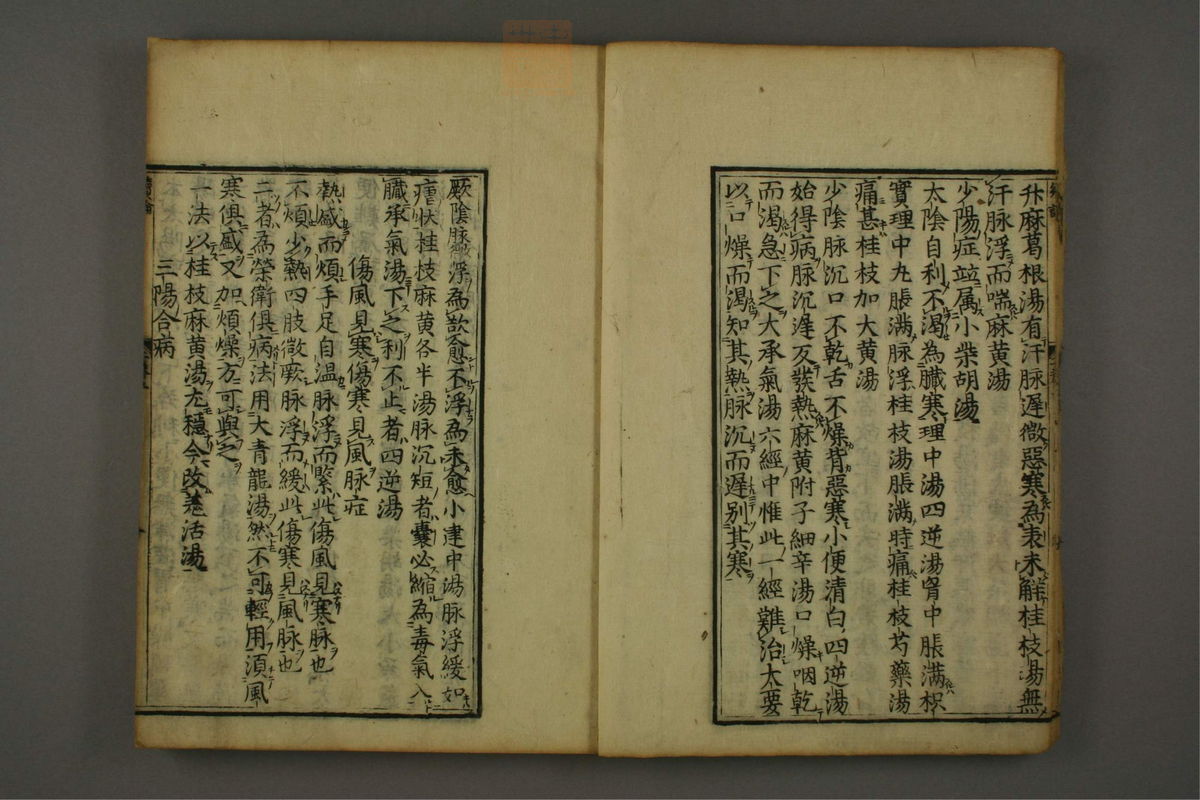 升麻葛根湯有汗脉遲微惡寒為表未解桂枝湯無
汗脉浮而喘麻黄湯
少陽症竝属小柴胡湯
太陰自利不渴為臟寒理中湯四逆湯胷中脹滿枳
實理中丸脹滿脉浮桂枝湯脹滿時痛桂枝芍藥湯
痛甚桂枝加大黄湯
少陰脉沉口不乾舌不燥背惡寒小便清白四逆湯
始得病脉沉遲反發熱麻黄附子細辛湯口燥咽乾
而渴急下之大承氣湯六經中惟此一經難治太要
以口燥而渴知其熱脉沉而遲别其寒
厥陰脉微浮為欲愈不浮為未愈小建中湯脉浮緩如
瘧狀桂枝麻黄各半湯脉沉短者囊必縮為毒氣入
臓承氣湯下之利不止者四逆湯
傷風見寒傷寒見風脉症
熱盛而煩手足自温脉浮而緊此傷風見寒脉也
不煩少熱四肢微厥脉浮而緩此傷寒見風脉也
二者為榮衛俱病法用大青龍湯然不可輕用須風
寒俱盛又加煩燥方可與之
一法以桂枝麻黄湯尤穩今改羗活湯
三陽合病